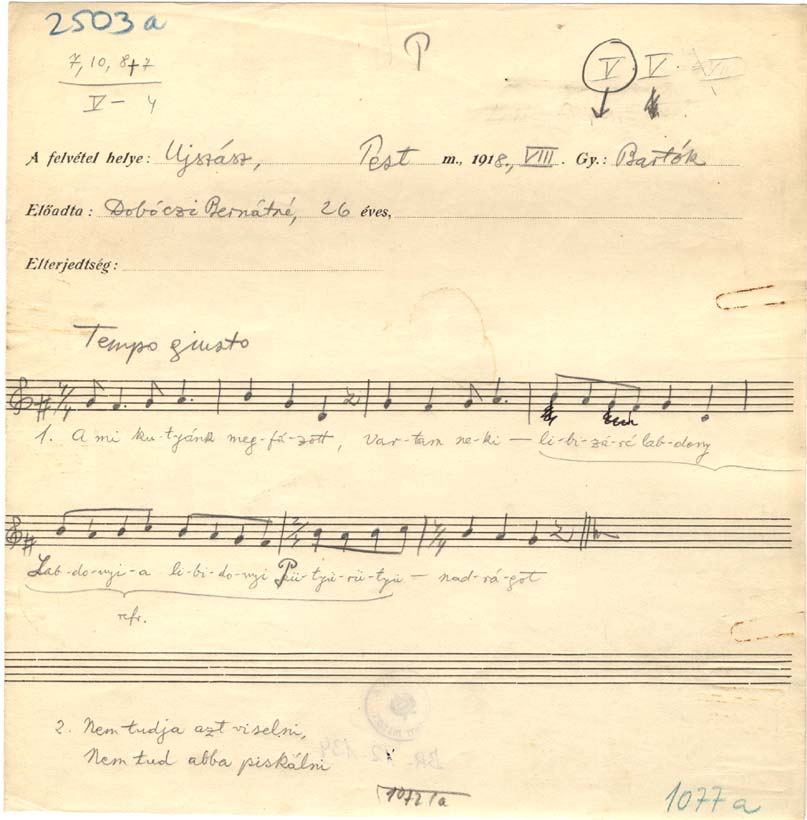 2503 a
P
7, 10, 8+7
V – 4
V V VII
A felvétel helye: Ujszász, Pest m., 1918., VIII. Gy.: Bartók
Előadta: Dobóczi Bernátné, 26 éves,
Elterjedtség:
Tempo giusto
4/4
1. A mi ku-tyánk meg-fá-zott, Var-tam ne-ki — li-bi-zá-ré lab-dony
2/4 4/4
Lab-do-nyi-a li-bi-do-nyi Pü-tyü-rü-tyü — nad-rá-got
refr.
2. Nem tudja azt viselni,
Nem tud abba piskálni
1077 a